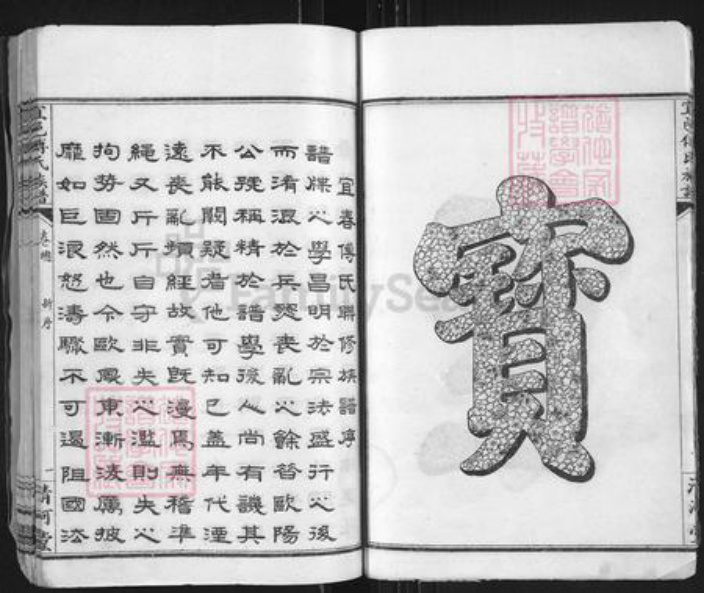 寶
宜春傅氏聯修族譜序
譜牒之學昌明於宗法盛行之後
而淆混於兵燹喪亂之餘昔歐陽
公號稱精於譜學後人尚有譏其
不能闕疑者他可知已蓋年代湮
遠喪亂頻經故實既漫焉無稽準
繩又斤斤自守非失之濫則失之
拘勢固然也今歐風東漸凌厲披
靡如巨浪怒濤驟不可遏阻國法
宜邑傅氏族譜
卷總 新序 一
清河堂
FamilySearch